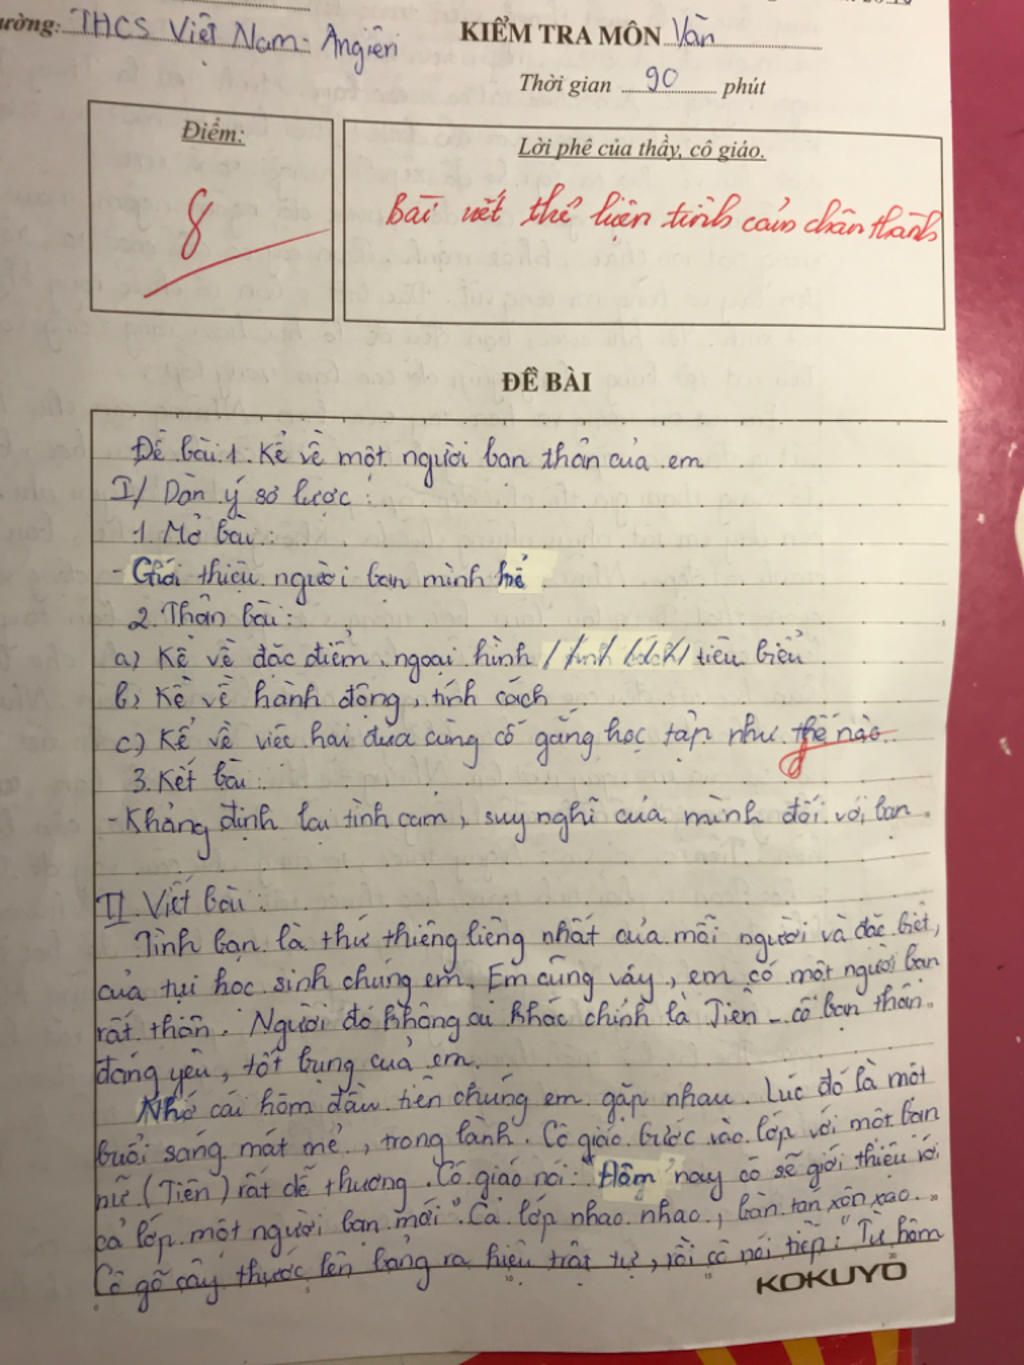 ường: THCS Việt Nam - Angiêri
KIỂM TRA MÔN Văn
Thời gian 90 phút
Điểm:
8
Lời phê của thầy, cô giáo.
Bài viết thể hiện tình cảm chân thành
ĐỀ BÀI
Đề bài 1. Kể về một người bạn thân của em
I/ Dàn ý sơ lược:
1. Mở bài:
- Giới thiệu người bạn mình kể
2. Thân bài:
a) Kể về đặc điểm, ngoại hình / tính cách / tiêu biểu
b) Kể về hành động, tính cách
c) Kể về việc hai đứa cùng cố gắng học tập như thế nào.
3. Kết bài:
- Khẳng định lại tình cảm, suy nghĩ của mình đối với bạn.
II. Viết bài:
Tình bạn là thứ thiêng liêng nhất của mỗi người và đặc biệt,
của tụi học sinh chúng em. Em cũng vậy, em có một người bạn
rất thân. Người đó không ai khác chính là Tiên - cô bạn thân
đáng yêu, tốt bụng của em.
Nhớ cái hôm đầu tiên chúng em gặp nhau. Lúc đó là một
buổi sáng mát mẻ, trong lành. Cô giáo bước vào lớp với một bạn
nữ (Tiên) rất dễ thương. Cô giáo nói: "Hôm nay cô sẽ giới thiệu với
cả lớp một người bạn mới". Cả lớp nhao nhao, bàn tán xôn xao.
Cô gõ cây thước lên bảng ra hiệu trật tự, rồi cô nói tiếp: "Từ hôm
KOKUYO